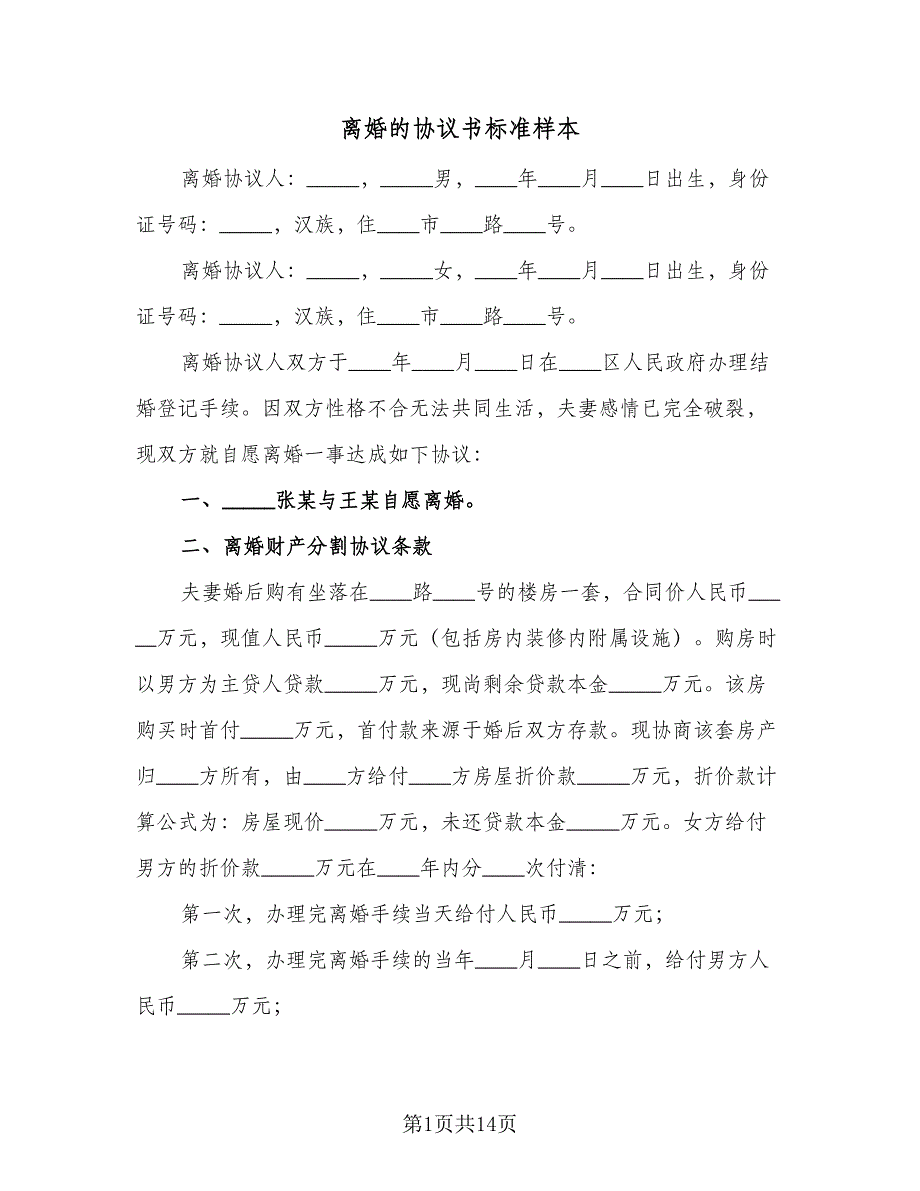 离婚的协议书标准样本
离婚协议人：_____，_____男，____年____月____日出生，身份
证号码：_____，汉族，住____市____路____号。
离婚协议人：_____，_____女，____年____月____日出生，身份
证号码：_____，汉族，住____市____路____号。
离婚协议人双方于____年____月____日在____区人民政府办理结
婚登记手续。因双方性格不合无法共同生活，夫妻感情已完全破裂，
现双方就自愿离婚一事达成如下协议：
一、_____张某与王某自愿离婚。
二、离婚财产分割协议条款
夫妻婚后购有坐落在____路____号的楼房一套，合同价人民币___
__万元，现值人民币_____万元（包括房内装修内附属设施）。购房时
以男方为主贷人贷款_____万元，现尚剩余贷款本金_____万元。该房
购买时首付_____万元，首付款来源于婚后双方存款。现协商该套房产
归____方所有，由____方给付____方房屋折价款_____万元，折价款计
算公式为：房屋现价_____万元，未还贷款本金_____万元。女方给付
男方的折价款_____万元在____年内分____次付清：
第一次，办理完离婚手续当天给付人民币_____万元；
第二次，办理完离婚手续的当年____月____日之前，给付男方人
民币_____万元；
第1页共14页